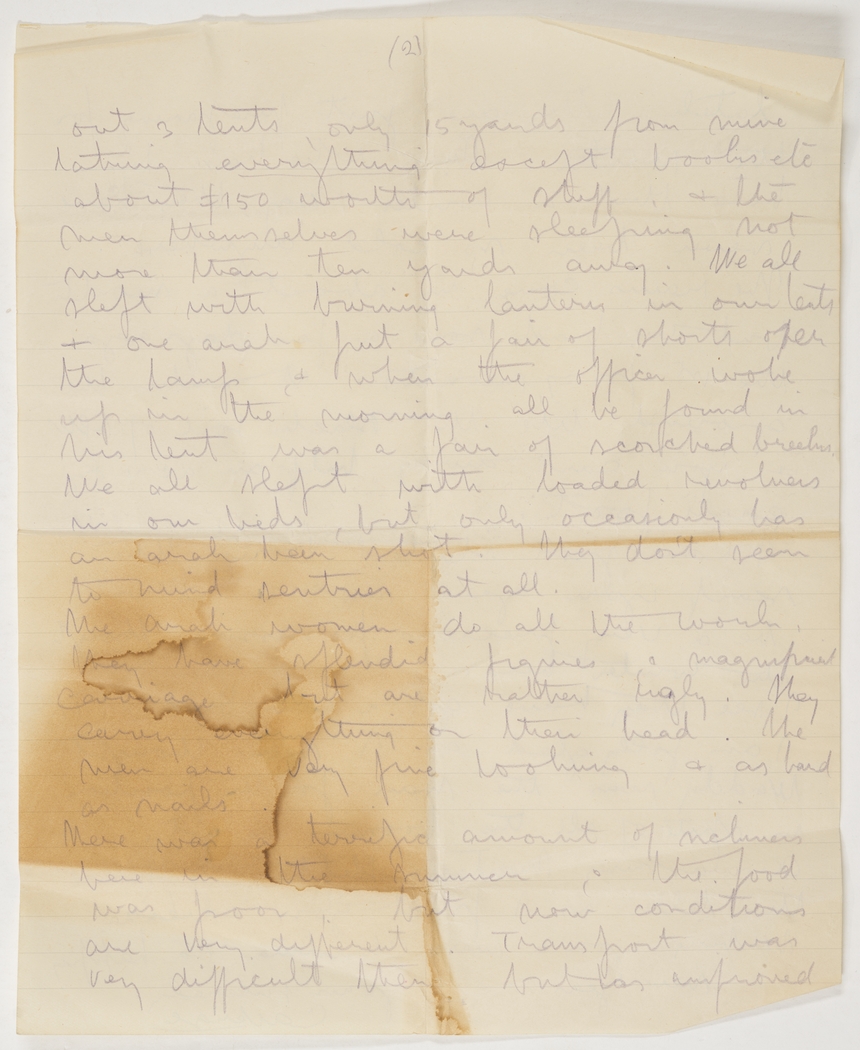 (2)
out 3 tents only 15 yards from mine
taking everything except boots etc
about $150 worth of stuff & the
men themselves were sleeping not
more than ten yards away. We all
slept with burning lanterns in our tents
+ one arab put a pair of shorts over
the lamp & when the officer woke
up in the morning all he found in
his tent was a pair of scorched breeches.
We all slept with loaded revolvers
in our beds, but only occasionly has
an arab been shot. They dont seem
to mind sentries at all.
The arab women do all the work,
they have splendid figures & magnificent
carriage but are rather ugly. They
carry everything on their head. The
men are very fine looking & as hard
as nails.
There was a terrific amount of sickness
here in the summer & the food
was poor but now conditions
are very different. Transport was
very difficult then but has improved